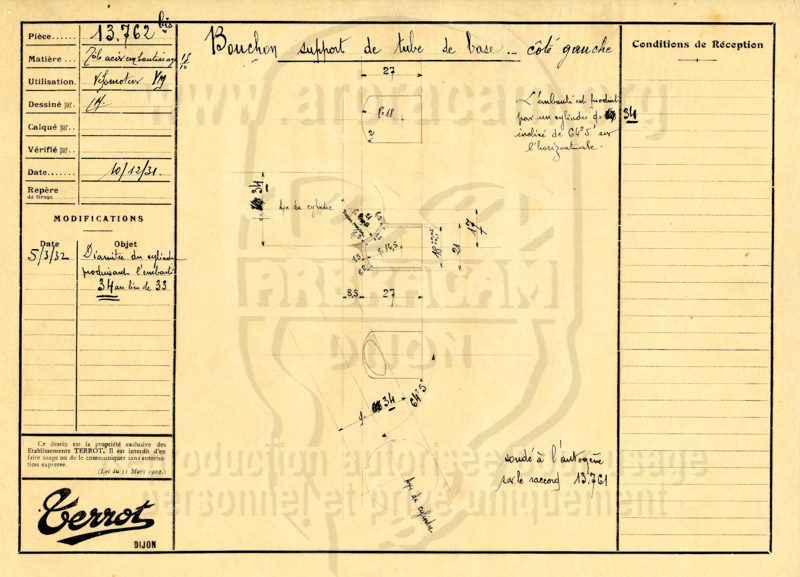 Pièce...... 13.762 bis
Matière... Tôle acier emboutissage 15/10
Utilisation. Vélomoteur
Dessiné par.
Calqué par...
Vérifié par..
Date......... 10/12/31.
Repère
de tirage.
MODIFICATIONS
Date Objet
5/3/32 Diamètre du cylindre
produisant l'embouti
34 au lieu de 33
Ce dessin est la propriété exclusive des
Etablissements TERROT. Il est interdit d'en
faire usage ou de le communiquer sans autorisa-
tion expresse.
(Loi du 11 Mars 1902.)
Terrot
DIJON
Bouchon support de tube de base _ côté gauche
27
R.18
2
L'embouti est produit
par un cylindre φ 34
incliné de 64°5' sur
l'horizontale.
34
Axe du cylindre
18
21
17
8,5 27
34
64°5'
Axe du cylindre
soudé à l'autogène
sur le raccord 13.761
Conditions de Réception
www.arbracam.org
ARBRACAM
DIJON
Reproduction autorisée pour usage
personnel et privé uniquement